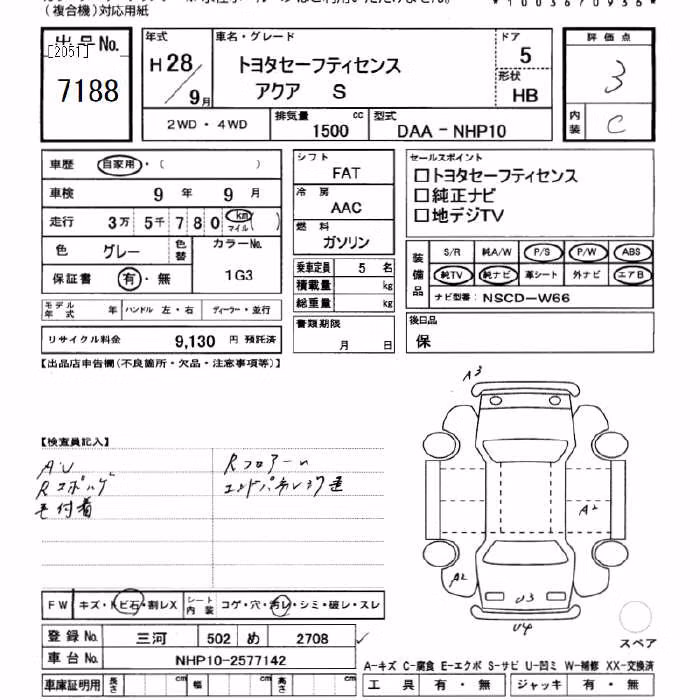 (複合機)対応用紙
出品No.
[2051]
7188
年式
H28/9月
車名・グレード
トヨタセーフティセンス
アクア S
ドア
5
形状
HB
2WD・4WD
排気量
1500 cc
型式
DAA-NHP10
評価点
3
内装
C
車歴 自家用・( )
車検 9年 9月
走行 3万 5千 7 8 0 km マイル( )
色 グレー 色替 カラーNo. 1G3
保証書 有・無
モデル年式 年 ハンドル 左・右 ディーラー・並行
リサイクル料金 9,130 円 預託済
シフト
FAT
冷房
AAC
燃料
ガソリン
乗車定員 5 名
積載量 kg
総重量 kg
書類期限
月 日
セールスポイント
□トヨタセーフティセンス
□純正ナビ
□地デジTV
装備品
S/R 純A/W P/S P/W ABS
純TV 純ナビ 革シート 外ナビ エアB
ナビ型番: NSCD-W66
後日品
保
【出品店申告欄(不良箇所・欠品・注意事項等)】
【検査員記入】
A・U
Rフロアー
毛付着
A3
A2
A2
U3
U4
FW キズ・トビ石・割レX シート内装 コゲ・穴・汚レ・シミ・破レ・スレ
登録No. 三河 502 め 2708
車台No. NHP10-2577142
車庫証明用 長さ cm 幅 cm 高さ cm
スペア
A-キズ C-腐食 E-エクボ S-サビ U-凹ミ W-補修 XX-交換済
工具 有・無 ジャッキ 有・無